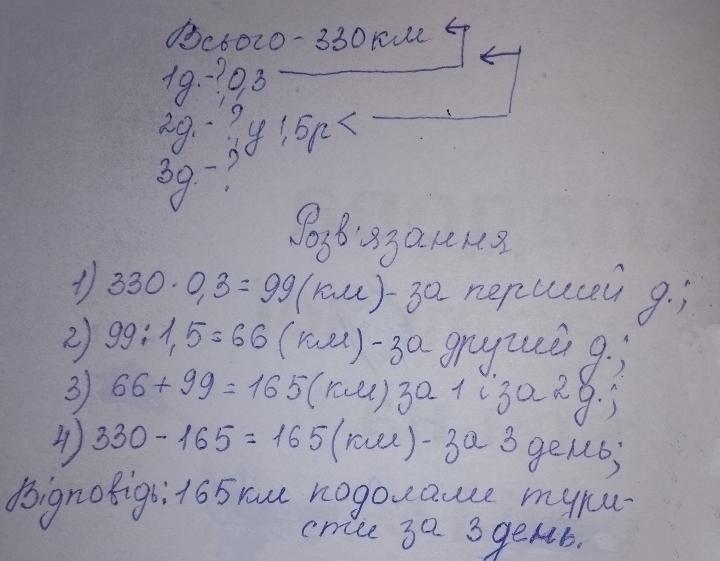 Всього - 330 км
1д. - ?, 0,3
2д. - ?, у 1,5р <
3д. - ?
Розв'язання
1) 330 · 0,3 = 99 (км) - за перший д.;
2) 99 : 1,5 = 66 (км) - за другий д.;
3) 66 + 99 = 165 (км) за 1 і за 2 д.;
4) 330 - 165 = 165 (км) - за 3 день;
Відповідь: 165 км подолали тури-
сти за 3 день.